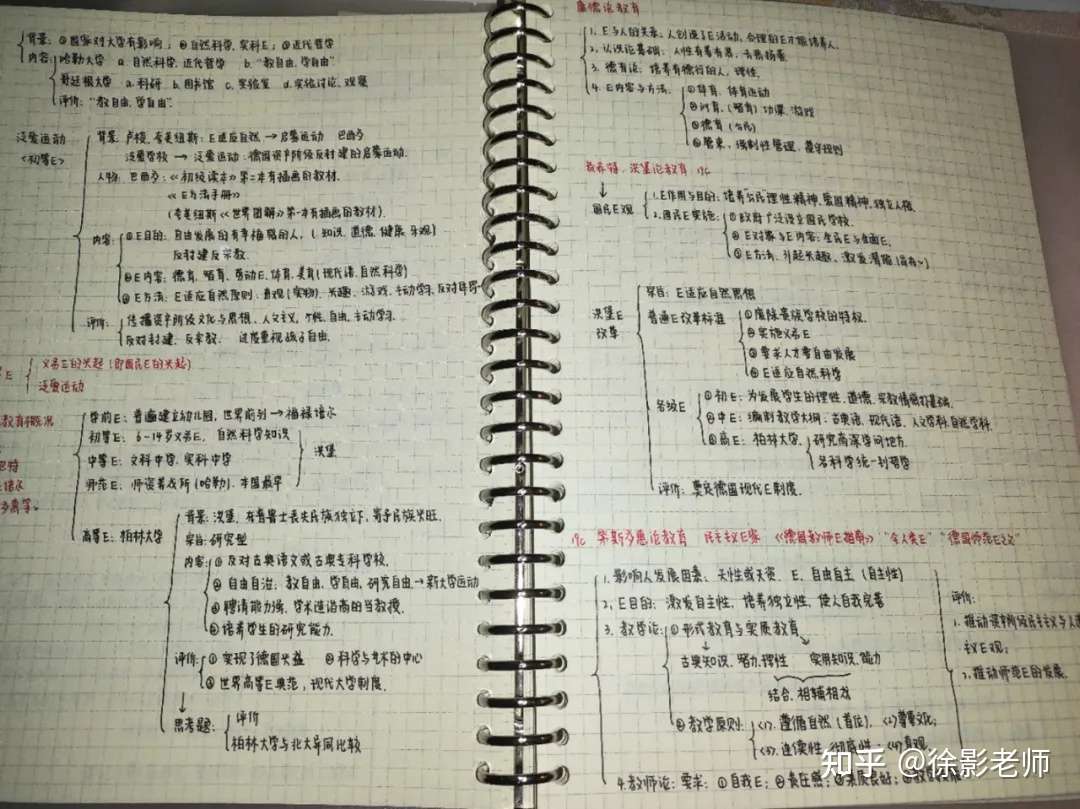 背景: ①国家对大学有影响; ②自然科学, 实科E; ③近代哲学
内容: 哈勒大学 a. 自然科学, 近代哲学 b. "教自由, 学自由"
哥廷根大学 a. 科研 b. 图书馆 c. 实验室 d. 实验讨论, 观察
评价: "教自由, 学自由".
泛爱运动
<初等E>
背景: 卢梭, 夸美纽斯: E适应自然 → 启蒙运动 巴西多
泛爱学校 → 泛爱运动: 德国资产阶级反封建的启蒙运动.
人物: 巴西多: 《初级读本》第二本有插画的教材.
《E方法手册》
(夸美纽斯《世界图解》第一本有插画的教材).
内容: ①E目的: 自由发展的有幸福感的人, (知识, 道德, 健康, 乐观)
反封建反宗教.
②E内容: 德育, 智育, 劳动E, 体育, 美育(现代语, 自然科学)
③E方法: E适应自然原则: 直观(实物), 兴趣, 游戏, 主动学习, 反对
评价: 传播资产阶级文化与思想, 人文主义, 个性, 自由, 主动学习.
反对封建, 反宗教. 过度重视孩子自由.
E 义务E的兴起 (即国民E的兴起)
泛爱运动
教育概况
学前E: 普遍建立幼儿园, 世界前列 → 福禄培尔
初等E: 6-14岁义务E, 自然科学知识
中等E: 文科中学, 实科中学
师范E: 师资养成所(哈勒), 本国最早
洪堡
高等E: 柏林大学
背景: 洪堡, 在普鲁士丧失民族独立下, 寄予民族兴旺.
宗旨: 研究型
内容: ①反对古典语文或古典专科学校.
②自由自治: 教自由, 学自由, 研究自由. → 新大学运动
③聘请能力强, 学术造诣高的当教授.
④培养学生的研究能力.
评价: ①实现了德国兴盛 ②科学与艺术的中心
③世界高等E典范, 现代大学制度.
思考题: 评价
柏林大学与北大异同比较
康德论教育
1. E与人的关系: 人创造了E活动, 合理的E才能培养人.
2. 认识论基础: 人性有善有恶, 去恶扬善
3. 德育论: 培养有德行的人, 理性.
4. E内容与方法: ①体育: 体育运动
②训育(智育): 功课, 游戏
③德育
④管束: 强制性管理, 遵守规则
费希特, 洪堡论教育, 19c
国民E观
1. E作用与目的: 培养"公民"理性精神, 爱国精神, 独立人格.
2. 国民E实施: ①政府广泛设立国民学校.
②E对象与E内容: 全民E与全面E.
③E方法: 引起兴趣, 激发潜能
洪堡E
改革
宗旨: E适应自然思想
普通E改革标准 ①废除贵族学校的特权.
②实施义务E
③要求人才要自由发展
④E适应自然科学
各级E ①初E: 为发展学生的理性, 道德, 宗教情感打基础.
②中E: 编制教学大纲: 古典语, 现代语, 人文学科, 自然学科.
③高E: 柏林大学, 研究高深学问地方.
各科学统一到哲学
评价: 奠定德国现代E制度.
19c 第斯多惠论教育 民主主义E家 《德国教师E指南》 "全人类E" "德国师范E之父"
1. 影响人发展因素: 天性或天资, E, 自由自主 (自主性)
2. E目的: 激发自主性, 培养独立性, 使人自我完善
3. 教学论: ①形式教育与实质教育
古典知识, 智力, 理性 实用知识, 能力
结合, 相辅相成
②教学原则: <1>. 遵循自然(首位), <2> 尊重文化;
<3>. 连续性, 彻底性, <4> 直观
4. 教师论: 要求: ①自我E; ②责任感; ③素质良好;
评价:
1. 推动资产阶级民主主义与人道
主义E观;
2. 推动师范E的发展.
知乎 @徐影老师